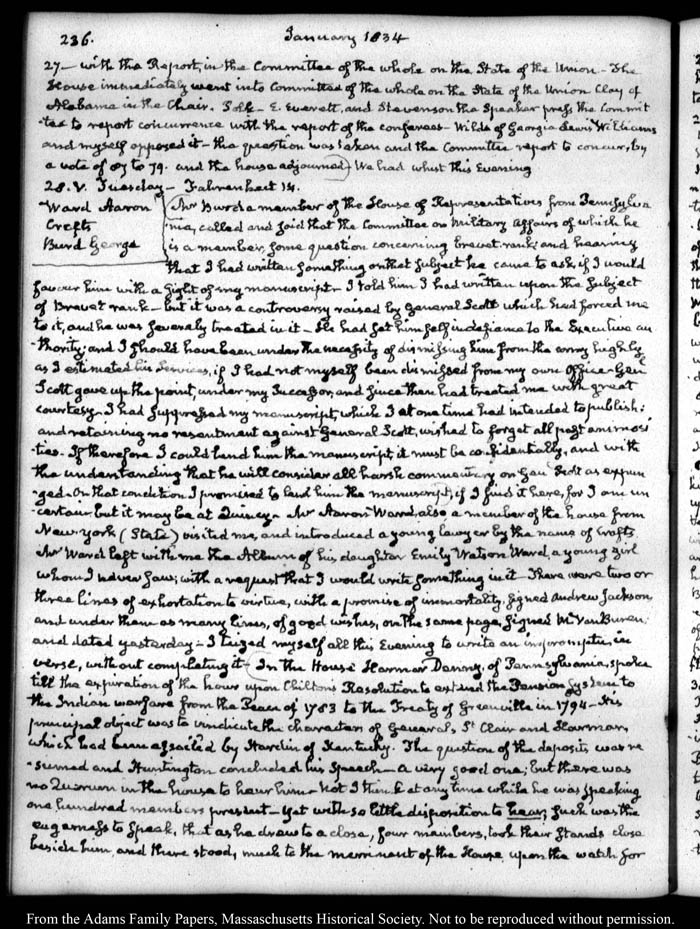 236. January 1834
27— with the Report, in the Committee of the whole on the State of the Union— The
House immediately went into Committee of the whole on the State of the Union Clay of
Alabama in the Chair. Polk— E. Everett, and Stevenson the Speaker press the Commit
tee to report concurrence with the report of the conferees— Wilde of Georgia Lewis Williams
and myself opposed it— the question was taken and the Committee report to concur, by
a vote of 87 to 79. and the house adjourned) We had whist this Evening
28. V. Tuesday— Fahrenheit 14.
Ward Aaron
Crofts
Burd George
Mr Burd a member of the House of Representatives from Pennsylva
nia, called and said that the Committee on Military Affairs of which he
is a member, some question concerning brevet rank; and hearing
that I had written something on that subject he came to ask if I would
favour him with a sight of my manuscript— I told him I had written upon the subject
of Brevet rank— but it was a controversy raised by General Scott which had forced me
to it, and he was severely treated in it— He had set himself in defiance to the Executive au
thority; and I should have been under the necessity of dismissing him from the army highly
as I estimated his Services, if I had not myself been dismissed from my own Office— Gen
Scott gave up the point, under my Successor, and since then had treated me with great
courtesy— I had suppressed my manuscript, which I at one time had intended to publish:
and retaining no resentment against General Scott, wished to forget all past animosi
ties— If therefore I could lend him the manuscript it must be confidentially, and with
the understanding that he will consider all harsh commentary on Genl Scott as expun
ged— On that condition I promised to lend him the manuscript, if I find it here, for I am un
certain, but it may be at Quincy— Mr Aaron Ward, also a member of the house from
New-York (State) visited me, and introduced a young lawyer by the name of Crofts.
Mr Ward left with me the Album of his daughter Emily Watson Ward, a young girl
whom I never saw; with a request that I would write something in it— There were two or
three lines of exhortation to virtue, with a promise of immortality, signed Andrew Jackson,
and under them as many lines, of good wishes, on the same page, signed M. Van Buren
and dated yesterday— I teized myself all this Evening to write an impromptu, in
verse, without completing it— In the House Harmar Denny, of Pennsylvania, spoke
till the expiration of the hour upon Chilton's Resolution to extend the Pension System to
the Indian warfare from the Peace of 1783 to the Treaty of Greenville in 1794— His
principal object was to vindicate the characters of Generals, St Clair and Harmar,
which had been assailed by Hardin of Kentucky. The question of the deposits was re
sumed and Huntington concluded his Speech— a very good one; but there was
no Quorum in the house to hear him— Not I think at any time while he was speaking
one hundred members present— Yet with so little disposition to hear, such was the
eagerness to speak, that as he drew to a close, four members, took their stands close
beside him, and there stood, much to the merriment of the House upon the watch for
From the Adams Family Papers, Massachusetts Historical Society. Not to be reproduced without permission.